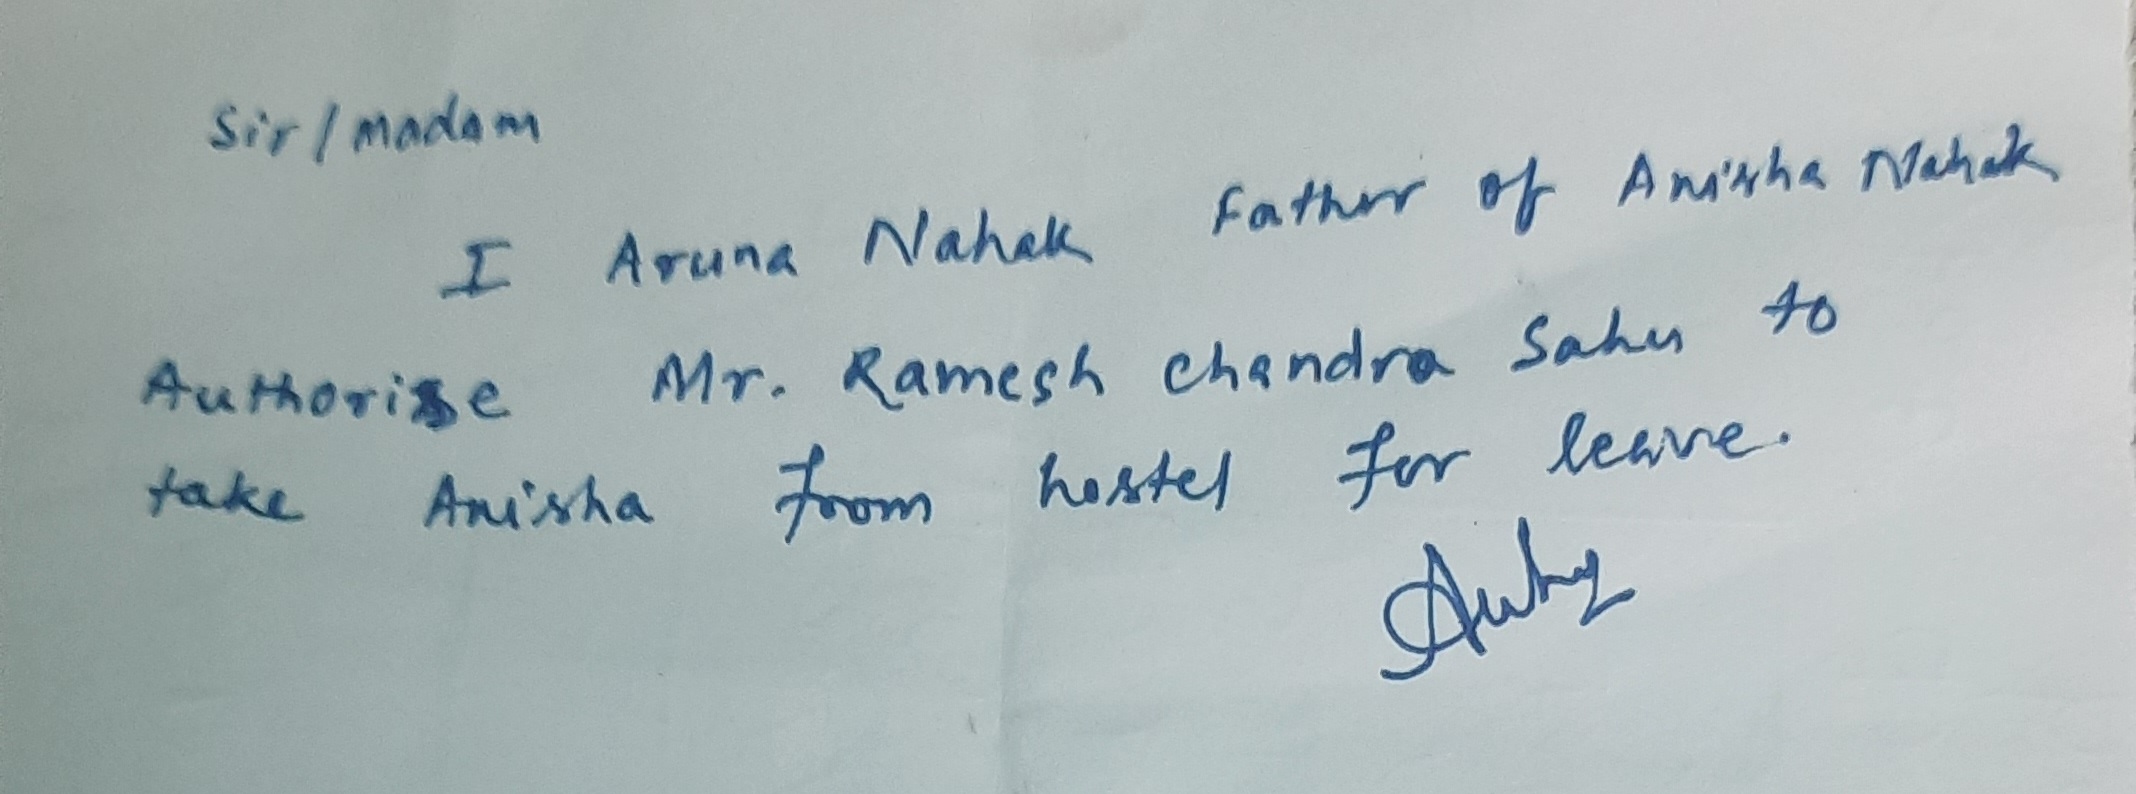 Sir/madam
I Aruna Nahak Father of Anisha Nahak
Authorise Mr. Ramesh chandra Sahu to
take Anisha from hostel for leave.